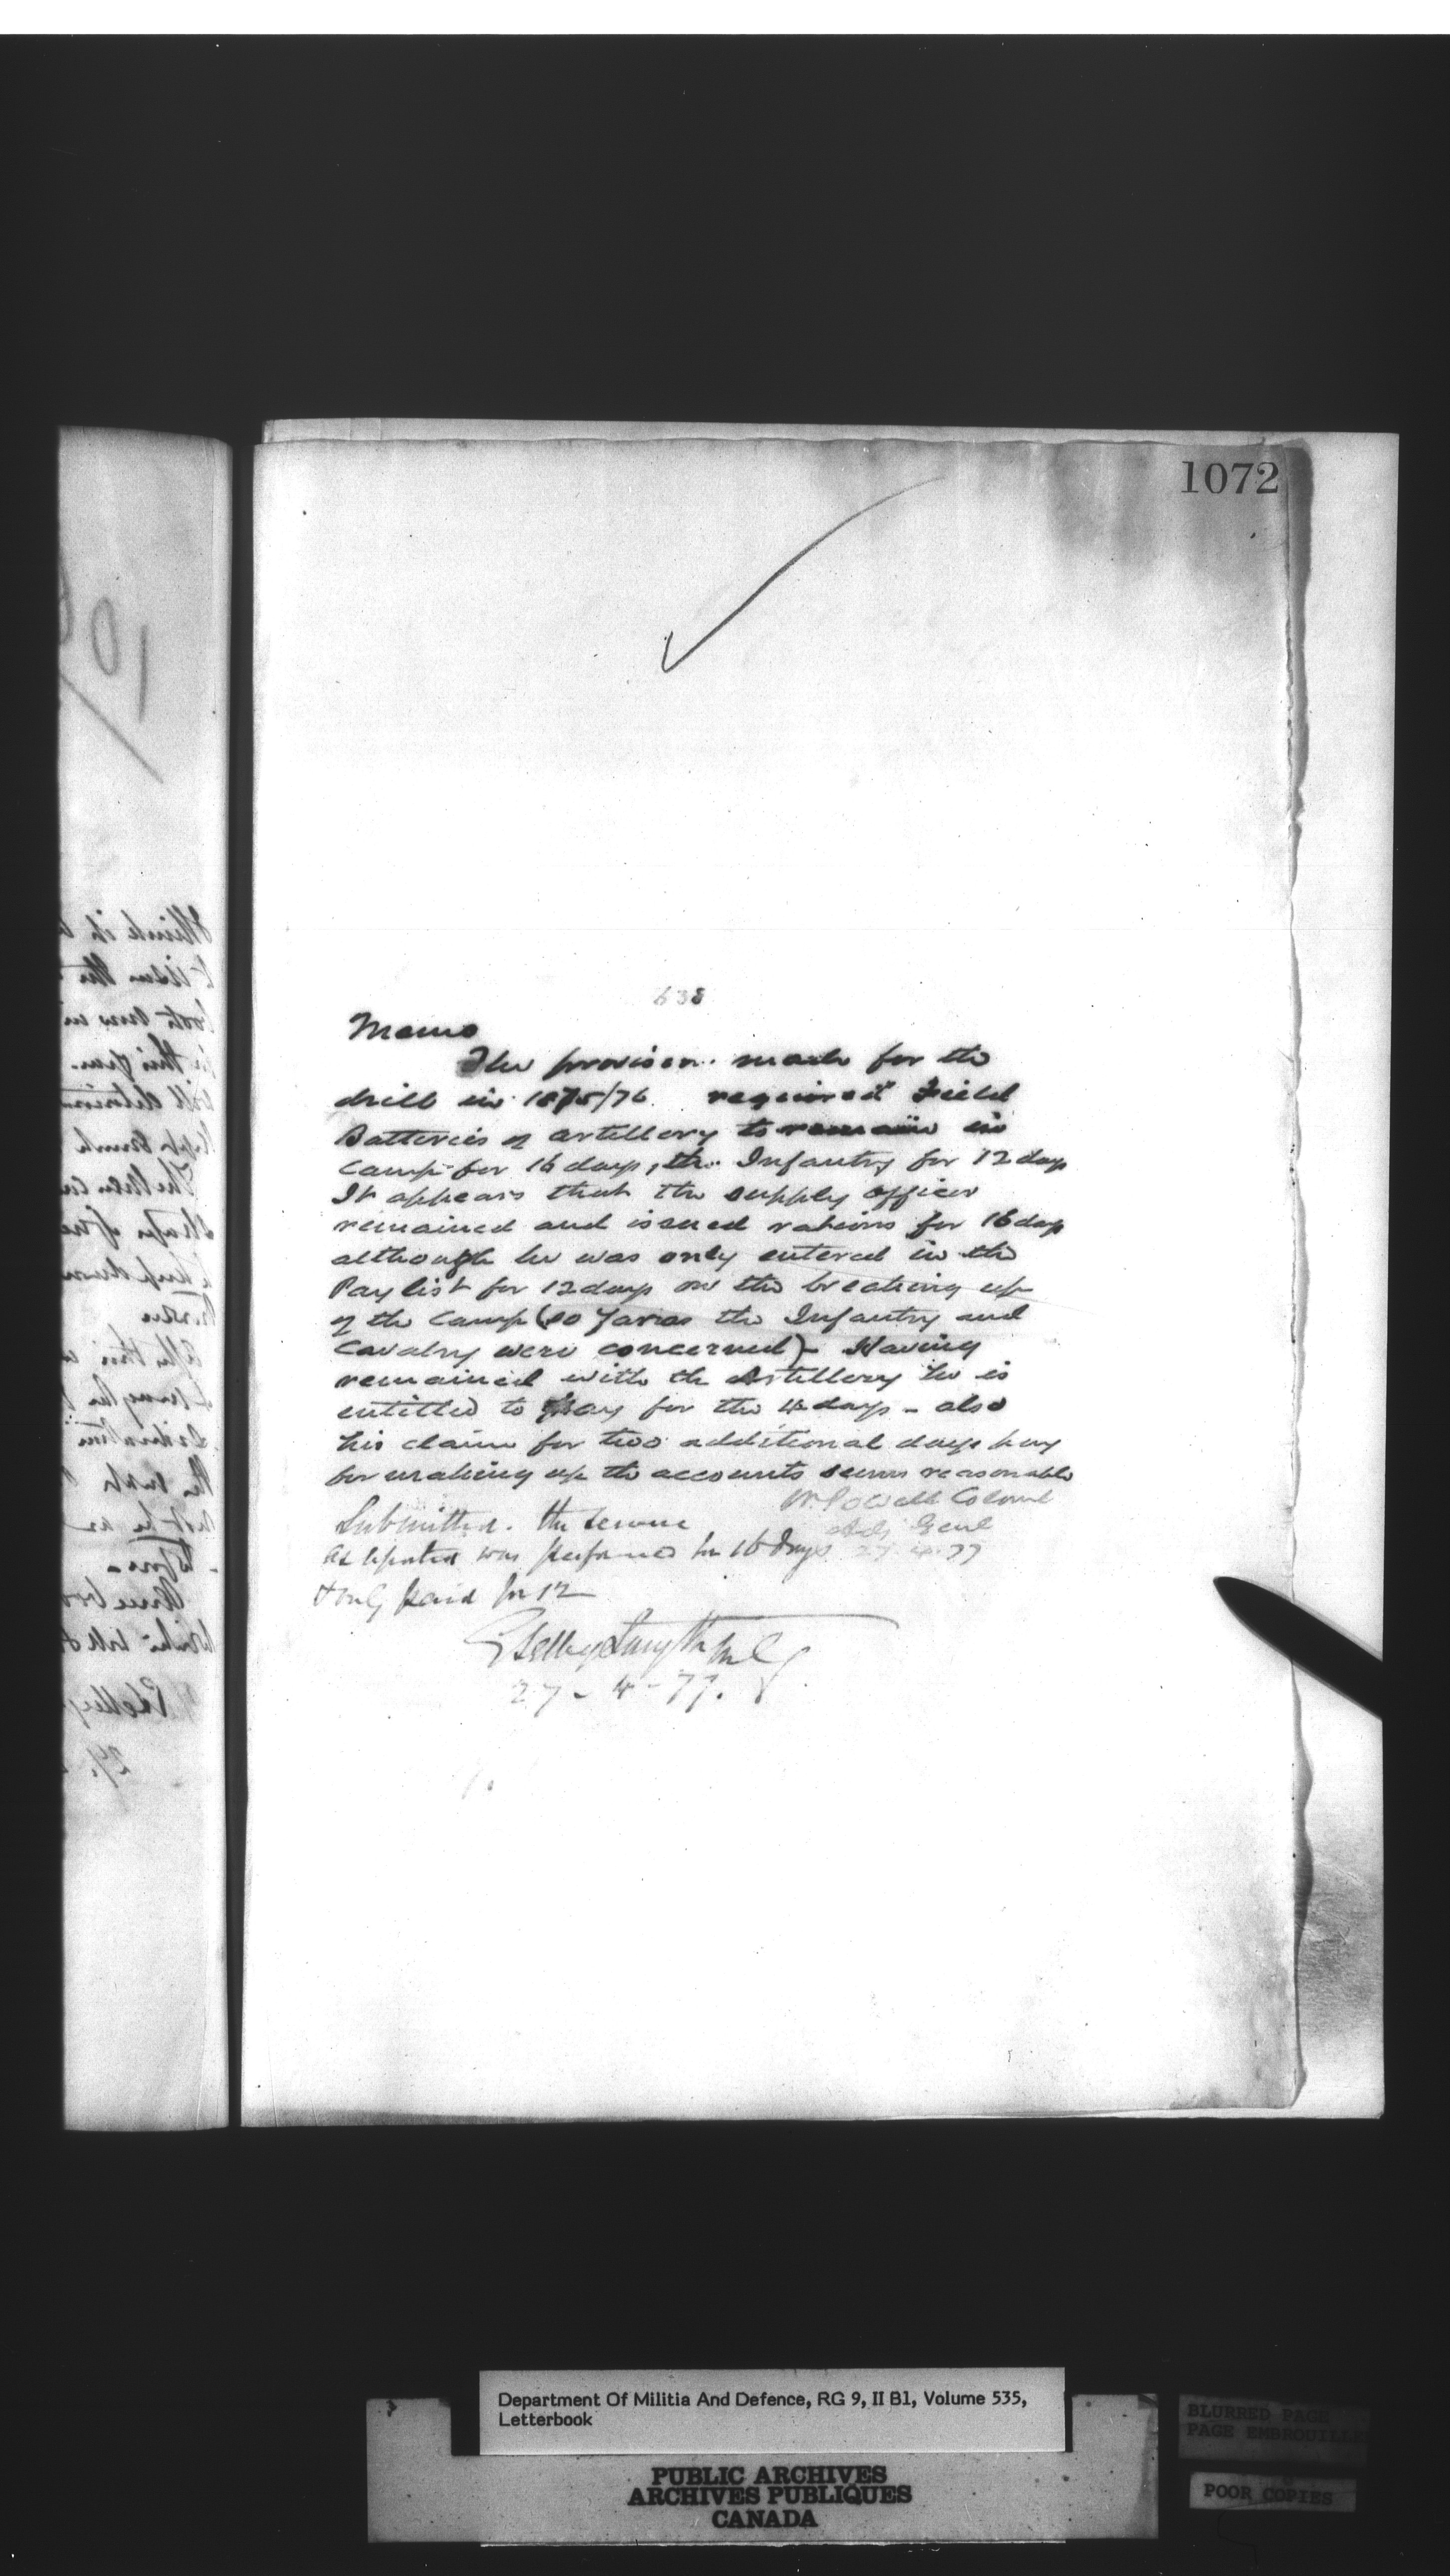 1072
638
Memo
The provision made for the
drill in 1875/76 required Field
Batteries of Artillery to remain in
Camp for 16 days, the Infantry for 12 days
It appears that the supply officer
remained and issued rations for 16 days
although he was only entered in the
Pay list for 12 days on the breaking up
of the Camp (so far as the Infantry and
Cavalry were concerned) - Having
remained with the Artillery he is
entitled to pay for the 4 days - also
his claim for two additional days pay
for making up the accounts seems reasonable
W. Powell Colonel
Adj Genl
27.4.77
Submitted. The service
as reported was performed for 16 days
& only paid for 12
E Selby Smyth
27-4-77.
Department Of Militia And Defence, RG 9, II B1, Volume 535,
Letterbook
PUBLIC ARCHIVES
ARCHIVES PUBLIQUES
CANADA
BLURRED PAGE
PAGE EMBROUILLE
POOR COPIES